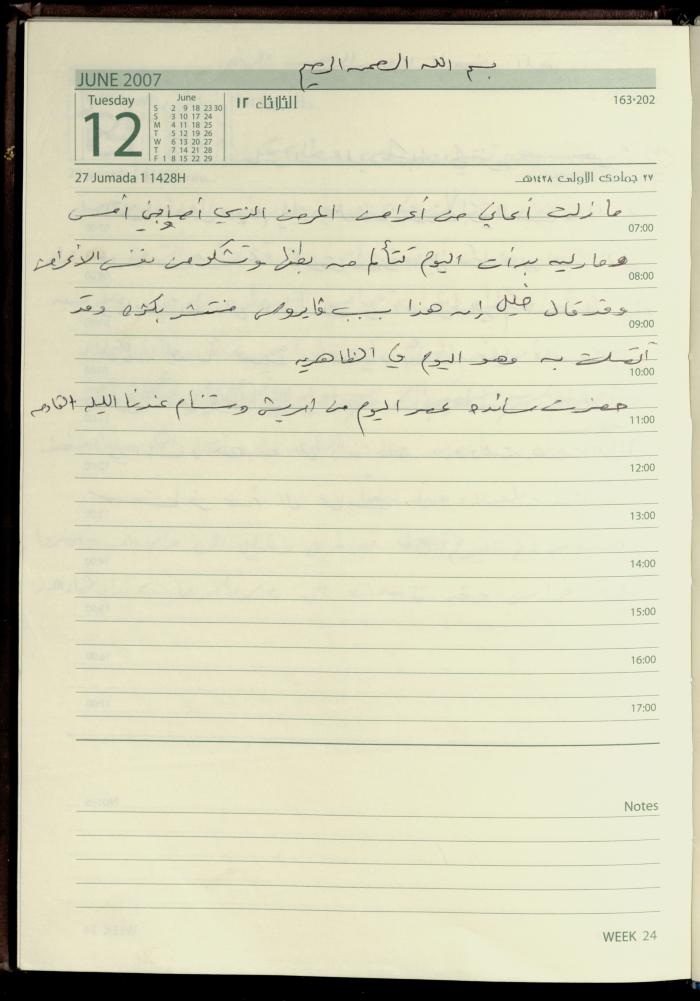 بسم الله الرحمن الرحيم
JUNE 2007
Tuesday
12
June
S 2 9 16 23 30
S 3 10 17 24
M 4 11 18 25
T 5 12 19 26
W 6 13 20 27
T 7 14 21 28
F 1 8 15 22 29
الثلاثاء ١٢
163-202
27 Jumada 1 1428H
٢٧ جمادى الاولى ١٤٢٨هـ
ما زلت أعاني من أعراض المرض الذي أصابني أمس
07:00
وماريه بدأت اليوم تتألم من بطنها وتشكو من نفس الأعراض
08:00
وقد قال خليل إن هذا بسبب فايروس منتشر بكثره وقد
09:00
أتصلت به وهو اليوم في الظاهريه
10:00
حضرت سانده عصر اليوم من ادريش وستنام عندنا الليله القادمه
11:00
12:00
13:00
14:00
15:00
16:00
17:00
Notes
WEEK 24